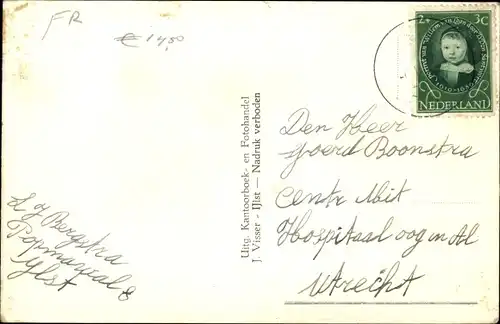 FR
€ 14,50
2+ 3c
NEDERLAND
Uitg. Kantoorboek- en Fotohandel
J. Visser - IJlst — Nadruk verboden
Den Heer
Sjoerd Boonstra
Centr Mil
Hospitaal oog in Al
Utrecht
Bergstra
Popmawal 8
Ylst